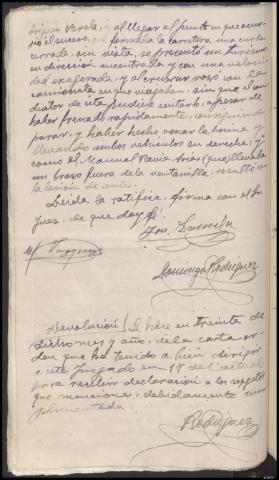 driguez Varela; y al llegar al punto en que ocurrio
el suceso, que formaba la carretera una curba
cerrada, sin vista, se presentó un turismo
en dirección encontrada y con una velocidad
exagerada, y al cruzar rozó con la
camioneta en que viajaban, sin que el conductor
de esta pudiese evitarlo, apesar de
haber frenado rapidamente, consiguiendo
parar, y haber hecho sonar la bocina y
llevando ambos vehiculos su derecha; y
como el Manuel Navia Arias (que) llevaba
un brazo fuera de la ventanilla, resultó con
la lesión de autos.
Leida la ratifica, firma con el Sr
Juez, de que doy fé.
Domingo Rodriguez
Devolución / Se hace en treinta de
dicho mes y año, de la carta orden
que ha tenido a bien dirigir
a este Juzgado en 17 del actual
para recibir declaración a los sugetos
que menciona, debidamente cumplimentada.
Rodriguez